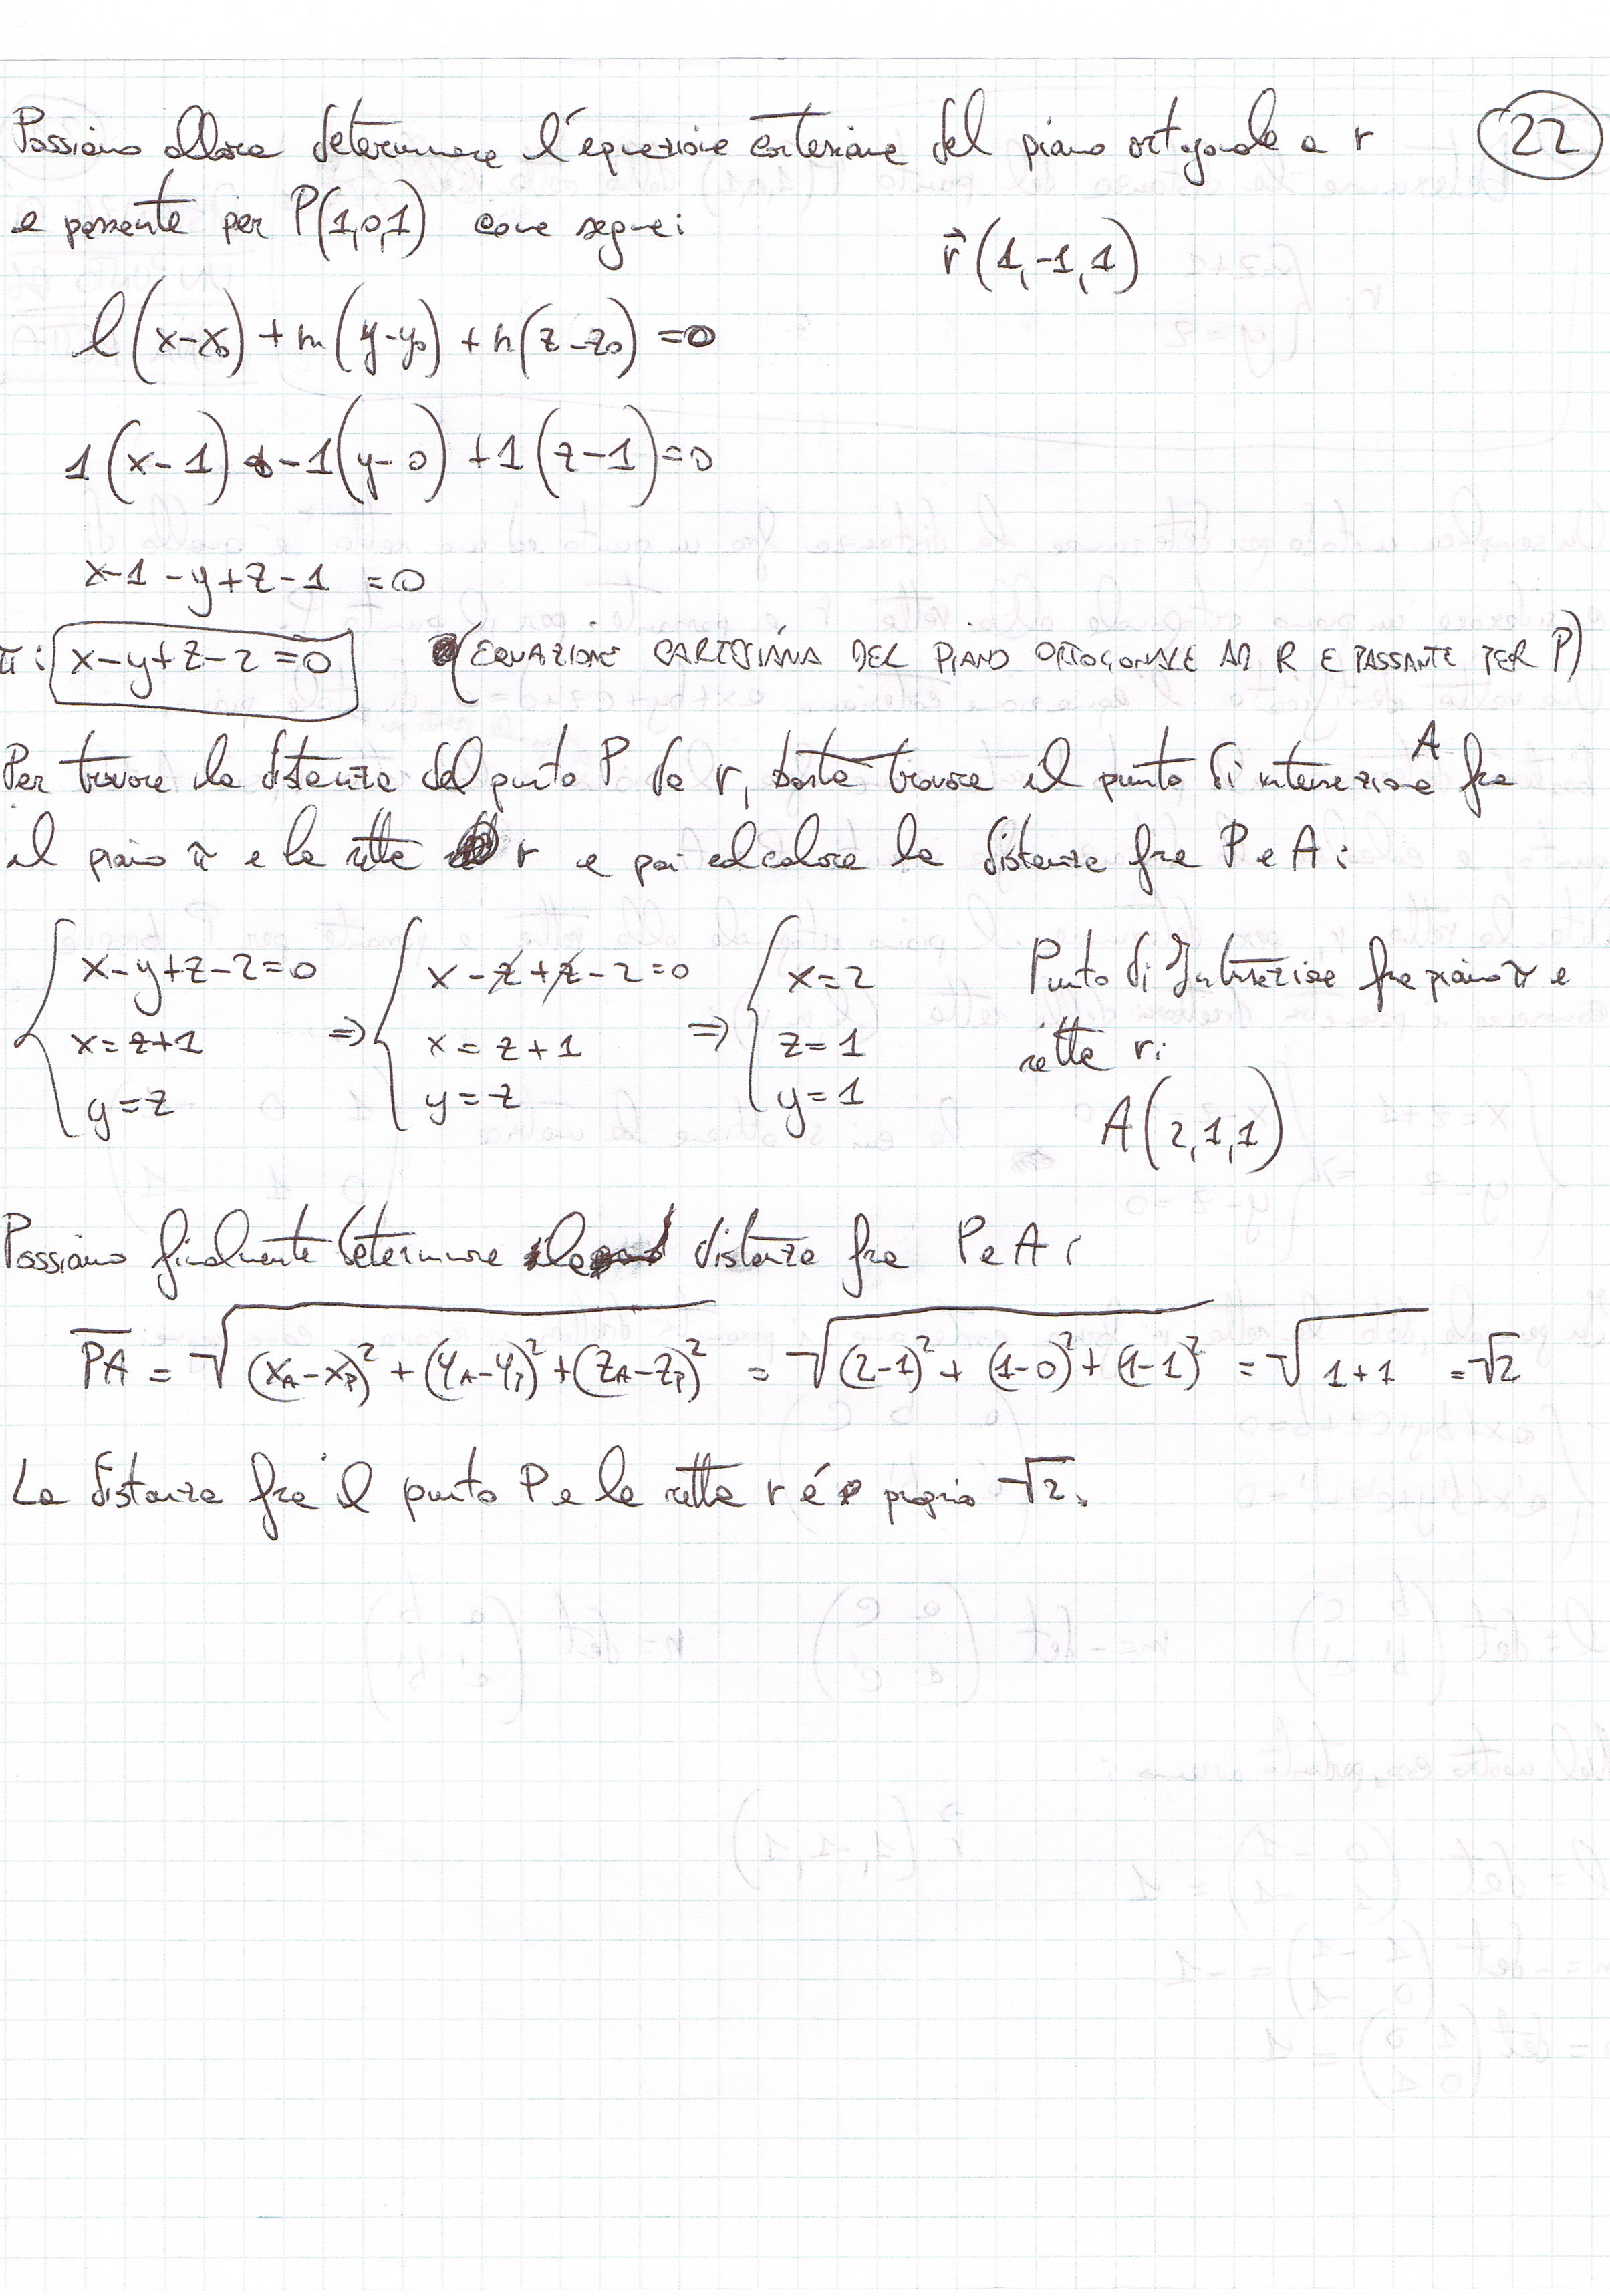 Possiamo allora determinare l'equazione cartesiana del piano ortogonale a r 22
e passante per P(1,0,1) come segue:
r⃗ (1,-1,1)
l(x-x₀) + m(y-y₀) + n(z-z₀) = 0
1(x-1) -1(y-0) +1(z-1)=0
x-1-y+z-1 =0
π: x-y+z-2=0 (EQUAZIONE CARTESIANA DEL PIANO ORTOGONALE AD R E PASSANTE PER P)
Per trovare la distanza del punto P da r, basta trovare il punto di intersezione A fra
il piano π e la retta r e poi calcolare la distanza fra P e A:
{ x-y+z-2=0 ⇒ { x-z+z-2=0 ⇒ { x=2 Punto di Intersezione fra piano π e
x=z+1 x=z+1 z=1 retta r:
y=z y=z y=1 A(2,1,1)
Possiamo finalmente determinare la distanza fra P e A:
PA = √(x_A-x_P)² + (y_A-y_P)² + (z_A-z_P)² = √(2-1)² + (1-0)² + (1-1)² = √1+1 = √2
La distanza fra il punto P e la retta r é proprio √2.